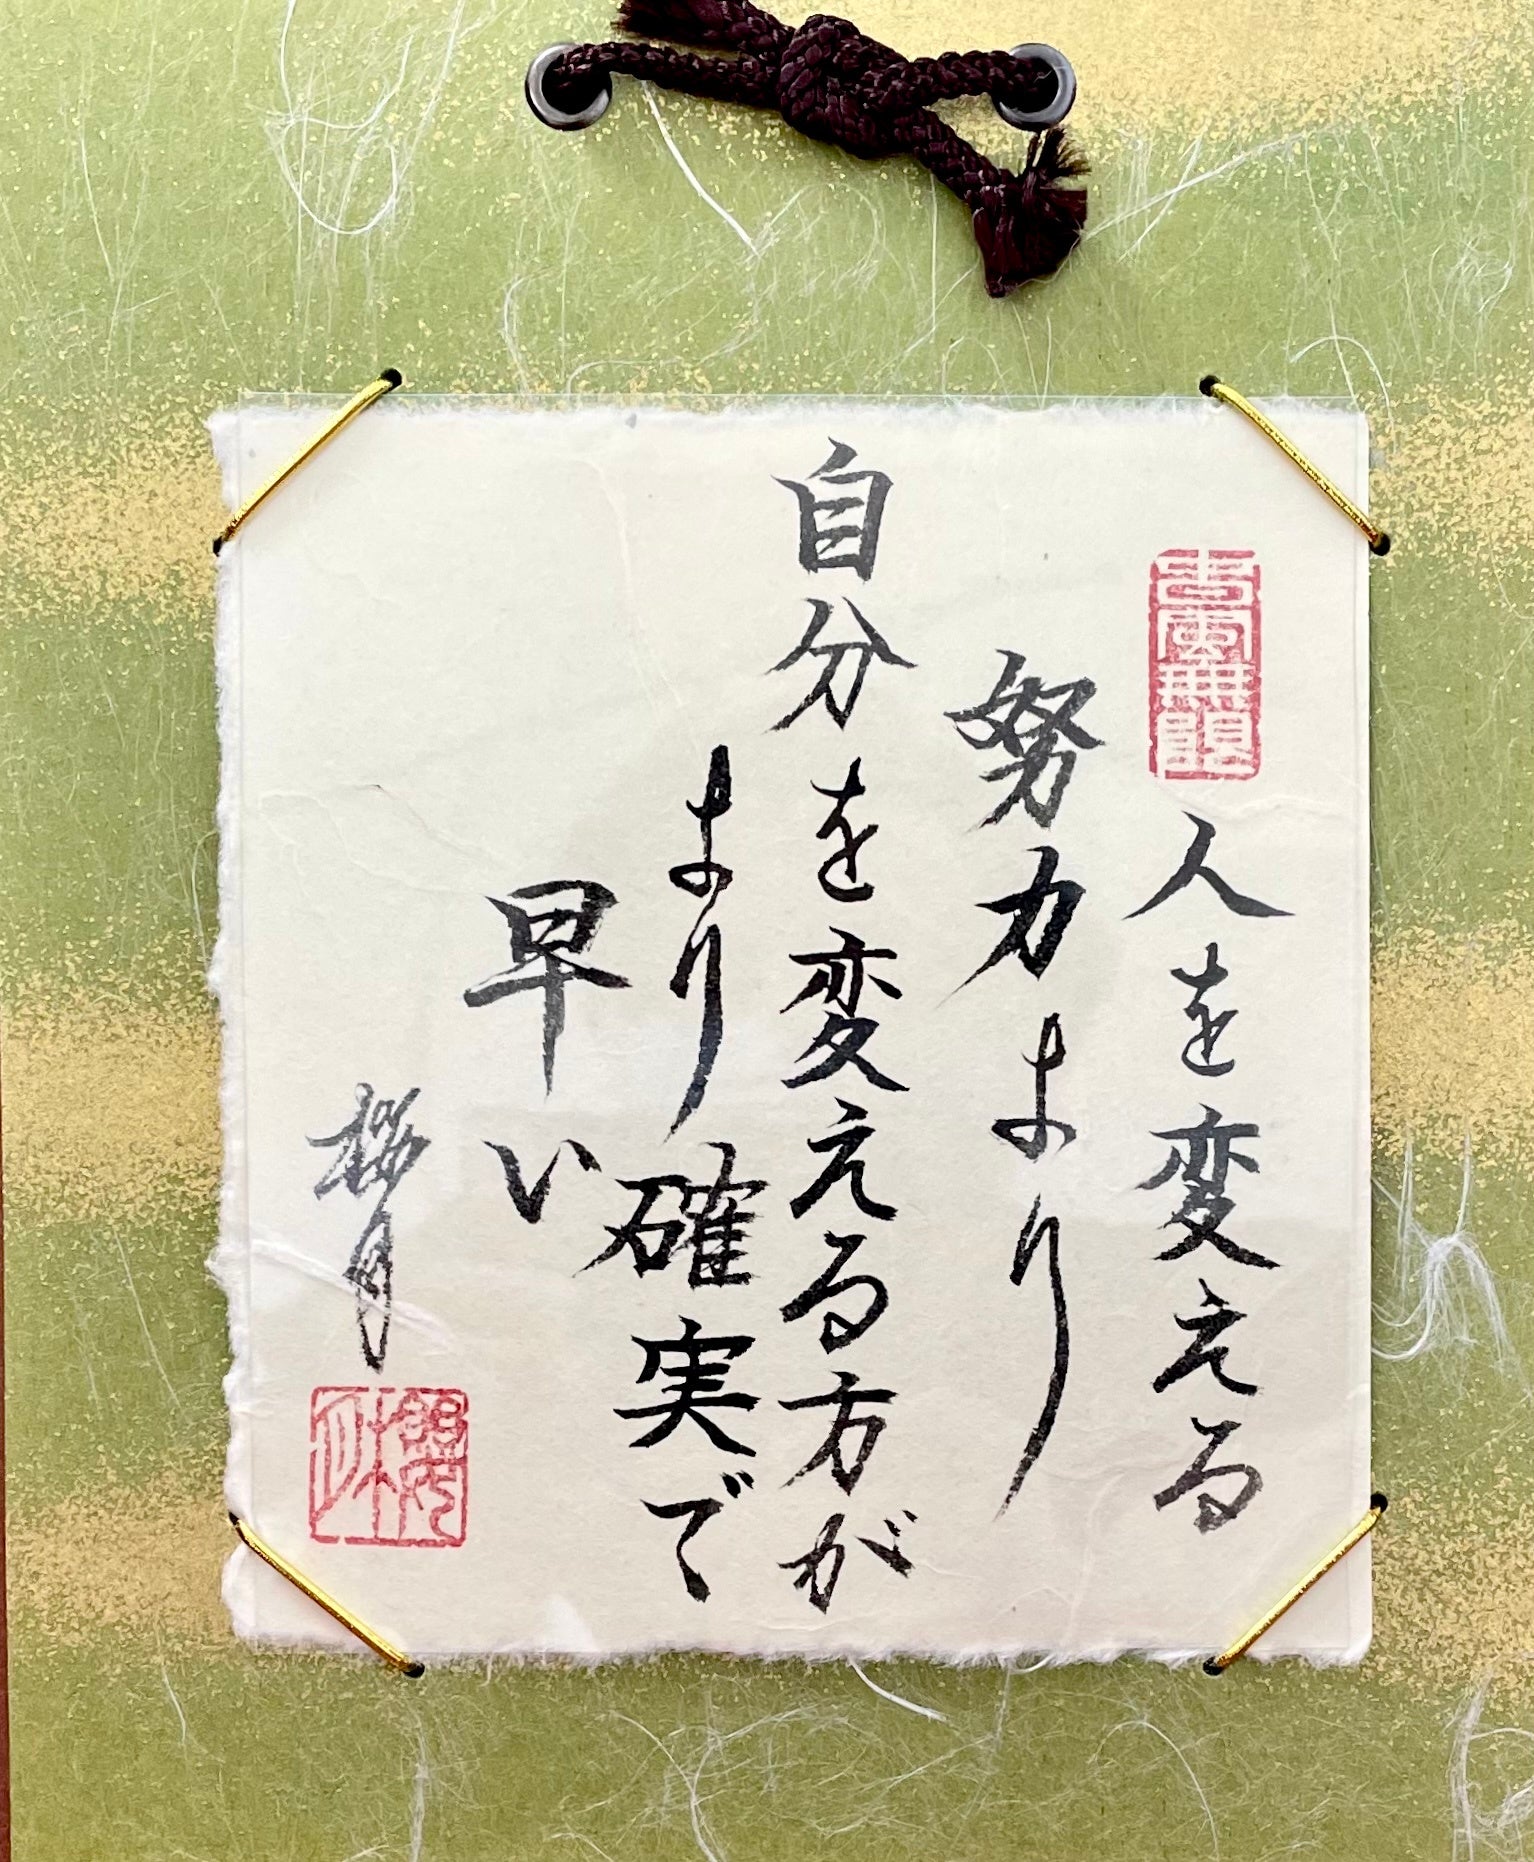 人を変える
努力より
自分を変える方が
より確実で
早い
桜月